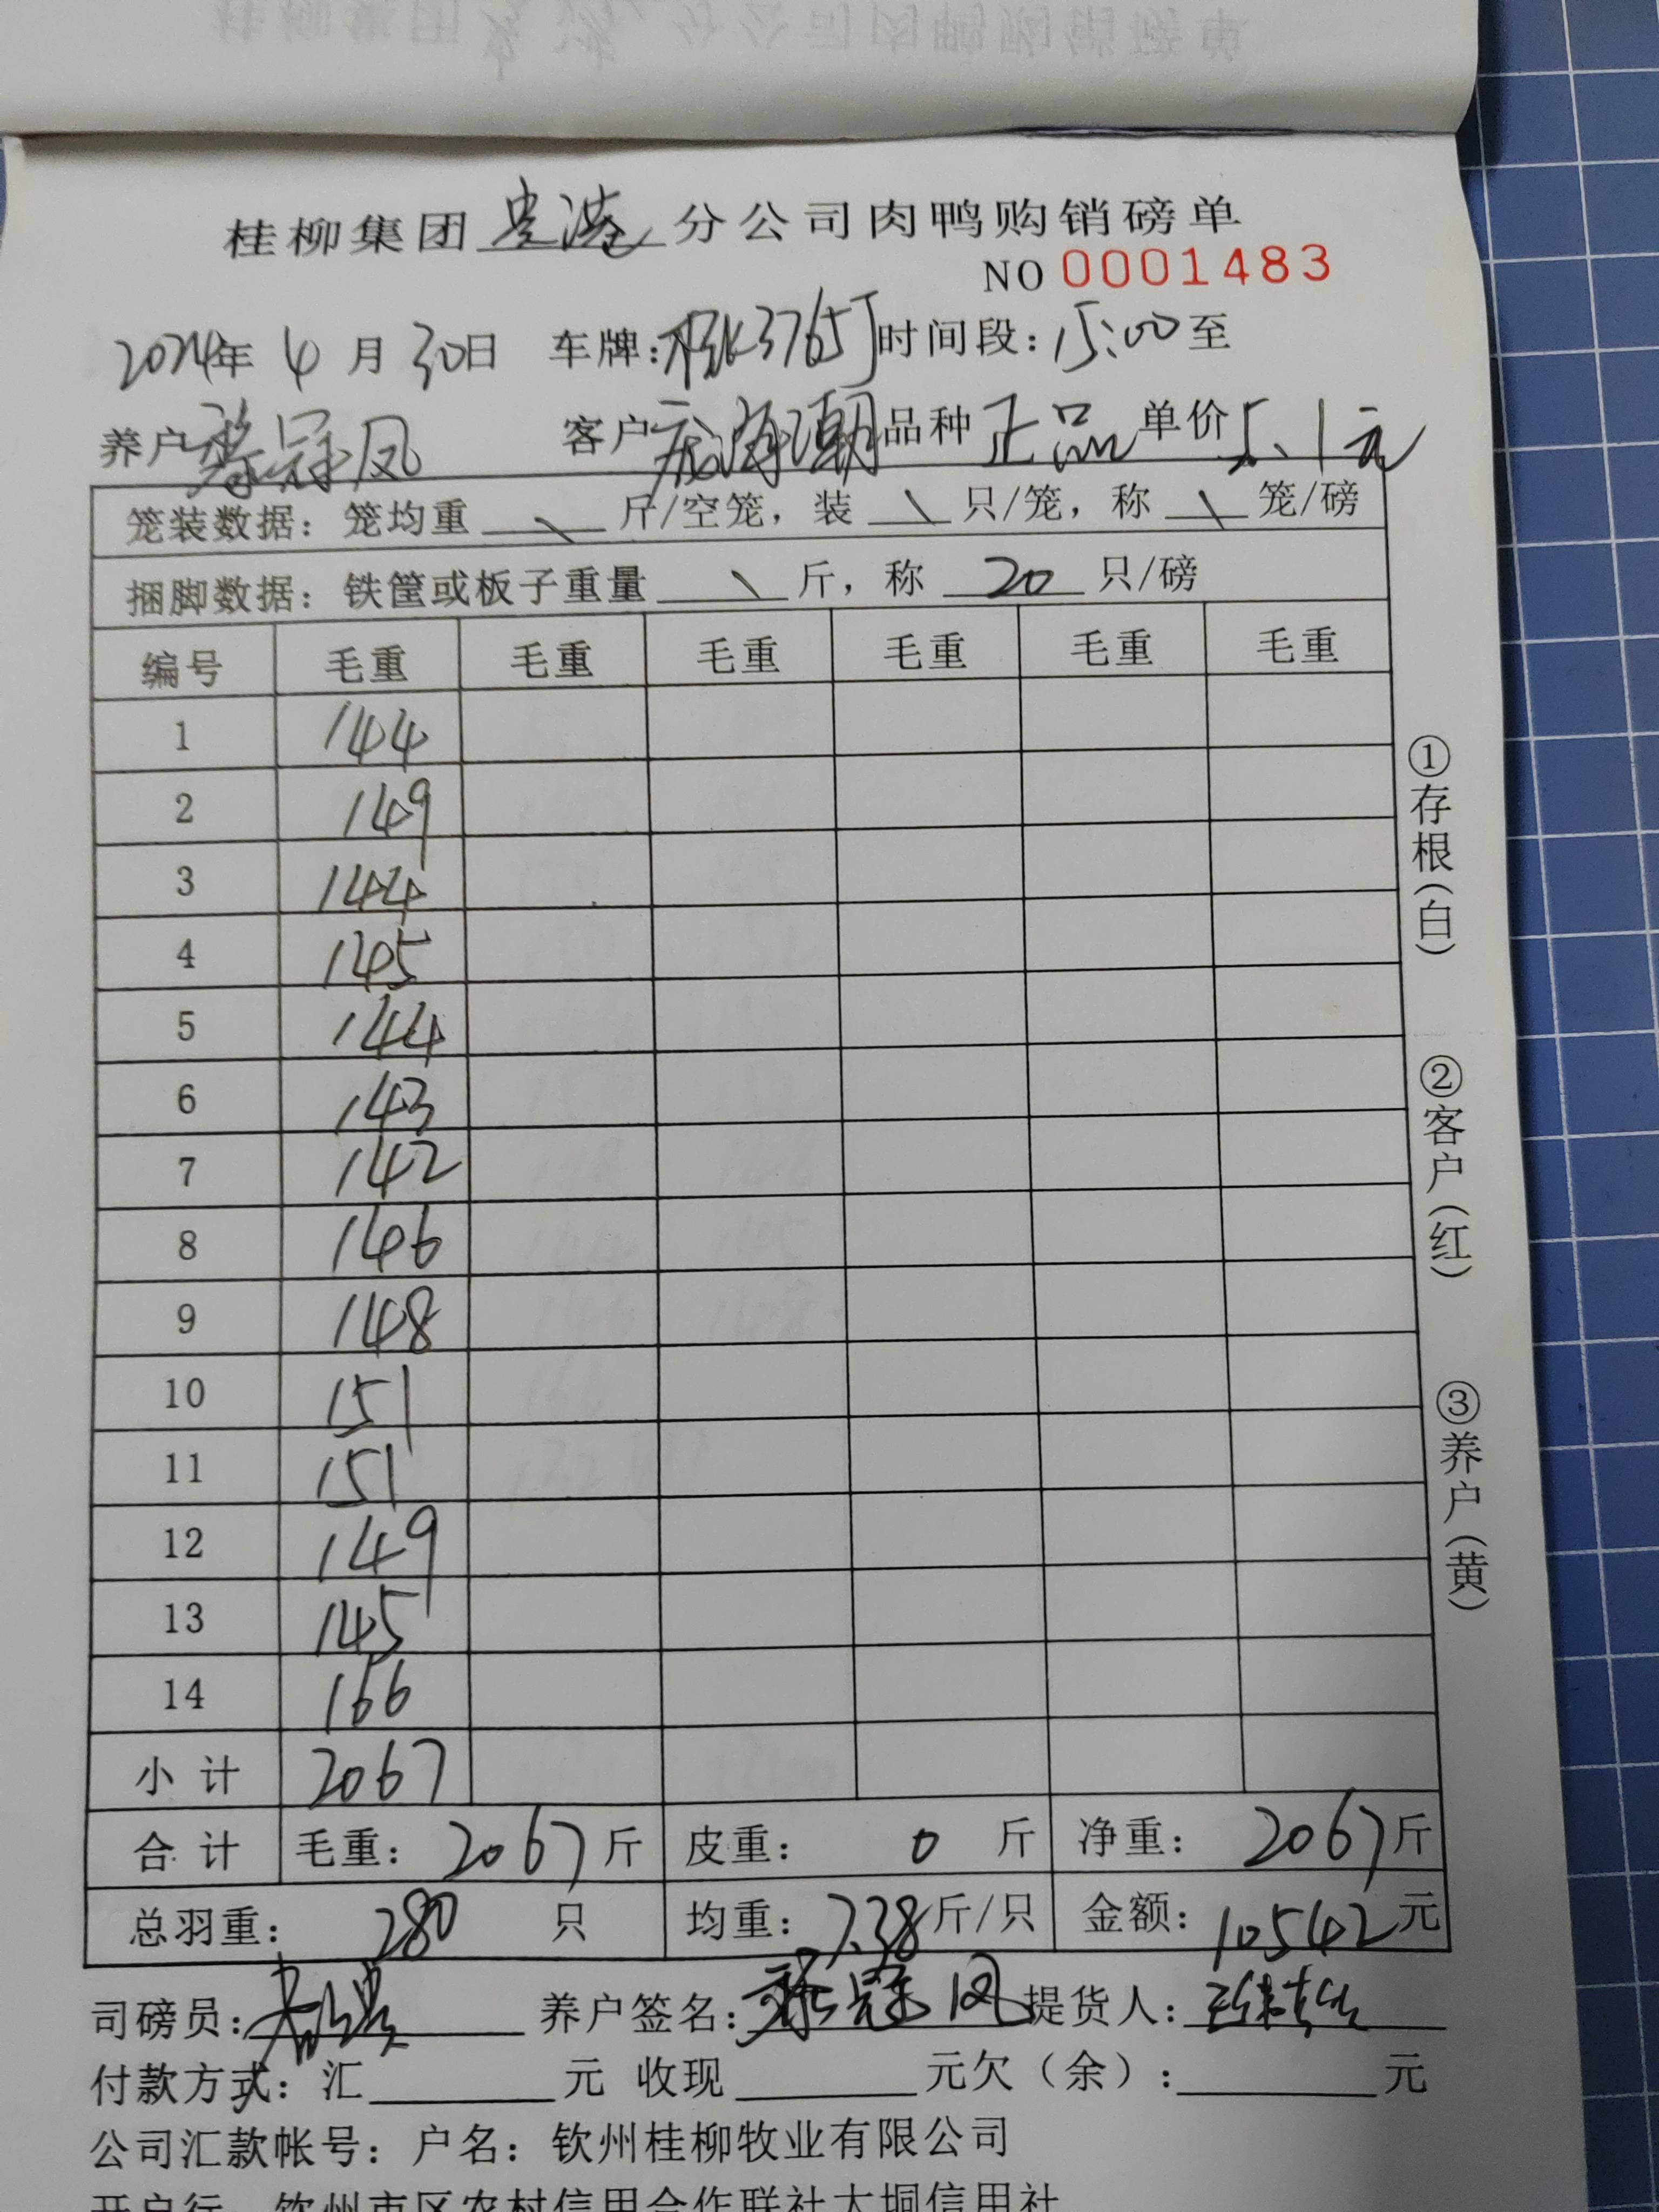 桂柳集团贵港分公司肉鸭购销磅单
NO 0001483
2024年 4 月 30日 车牌:桂K3765J 时间段:15:00至
养户 冠凤 客户 海潮 品种 正品 单价 5.1元
笼装数据:笼均重 \ 斤/空笼,装 \ 只/笼,称 \ 笼/磅
捆脚数据:铁筐或板子重量 \ 斤,称 20 只/磅
编号 毛重 毛重 毛重 毛重 毛重 毛重
1 144
2 149
3 144
4 145
5 144
6 143
7 142
8 146
9 148
10 151
11 151
12 149
13 145
14 166
小计 2067
合计 毛重:2067斤 皮重:0 斤 净重:2067斤
总羽重:280 只 均重:7.38斤/只 金额:10542元
司磅员: 养户签名: 冠凤 提货人:
付款方式:汇 元 收现 元欠(余): 元
公司汇款帐号:户名:钦州桂柳牧业有限公司
开户行 钦州市区农村信用合作联社大垌信用社
①存根(白)
②客户(红)
③养户(黄)